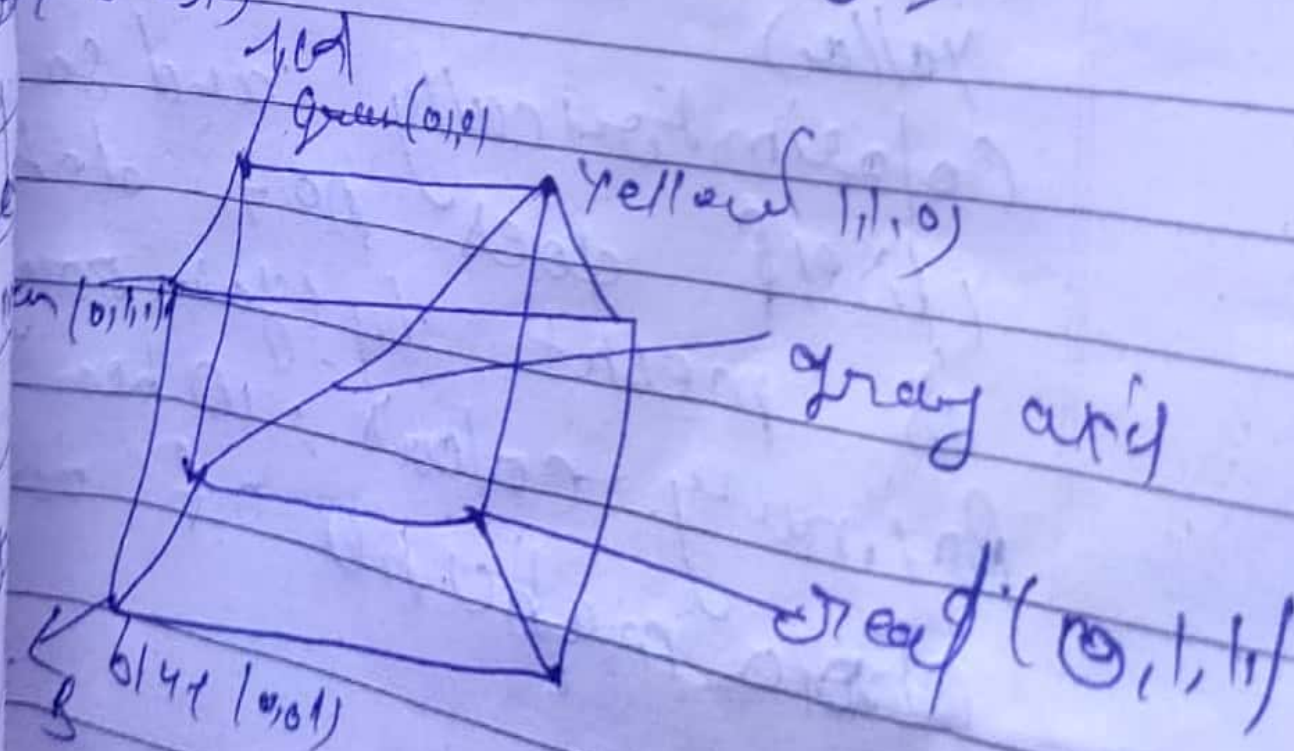 green(0,0)
Yellow 1,1,0)
(0,1,1)
gray axis
read (0,1,1)
blue (0,01)
B